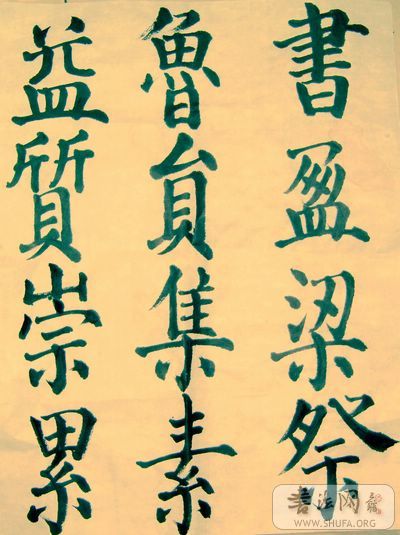 書盈梁祭
魯負集素
益質崇累
書法网
WWW.SHUFA.ORG